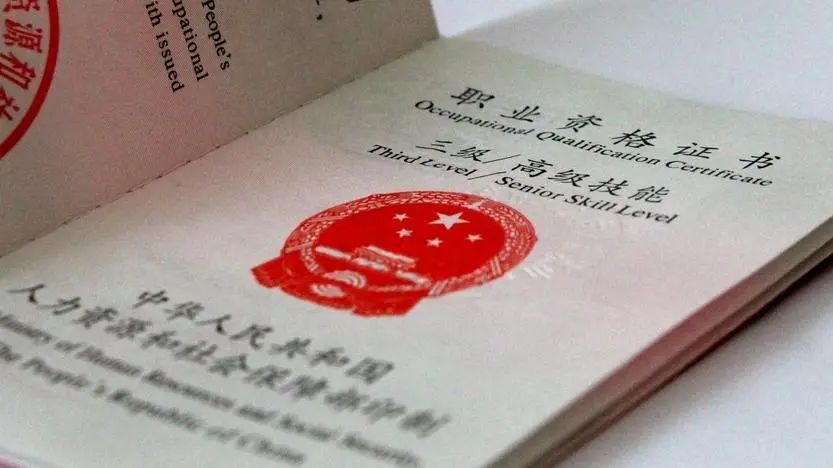 资源和社
People's
upational
ith issued
职业资格证书
Occupational Qualification Certificate
三级/高级技能
Third Level/Senior Skill Level
中华人民共和国
人力资源和社会保障部印制
Ministry of Human Resources and Social Security,
The People's Republic of China